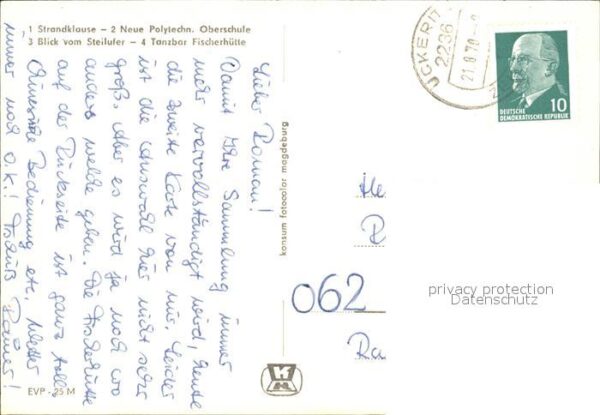 1 Strandklause – 2 Neue Polytechn. Oberschule
3 Blick vom Steilufer – 4 Tanzbar Fischerhütte
UCKERITZ
2236
21.8.70
10
DEUTSCHE
DEMOKRATISCHE REPUBLIK
Lieber Roman!
Damit Ihre Sammlung immer
mehr vervollständigt wird, heute
die zweite Karte von mir. Leider
ist die Auswahl hier nicht sehr
groß. Aber es wird ja noch wo
anders welche geben. Die Fischerhütte
auf der Rückseite ist ganz toll,
Bedienung etc. Wetter
immer noch o.k.! Gruß
konsum fotocolor magdeburg
He
R
062
Ra
privacy protection
Datenschutz
KM
EVP -25 M